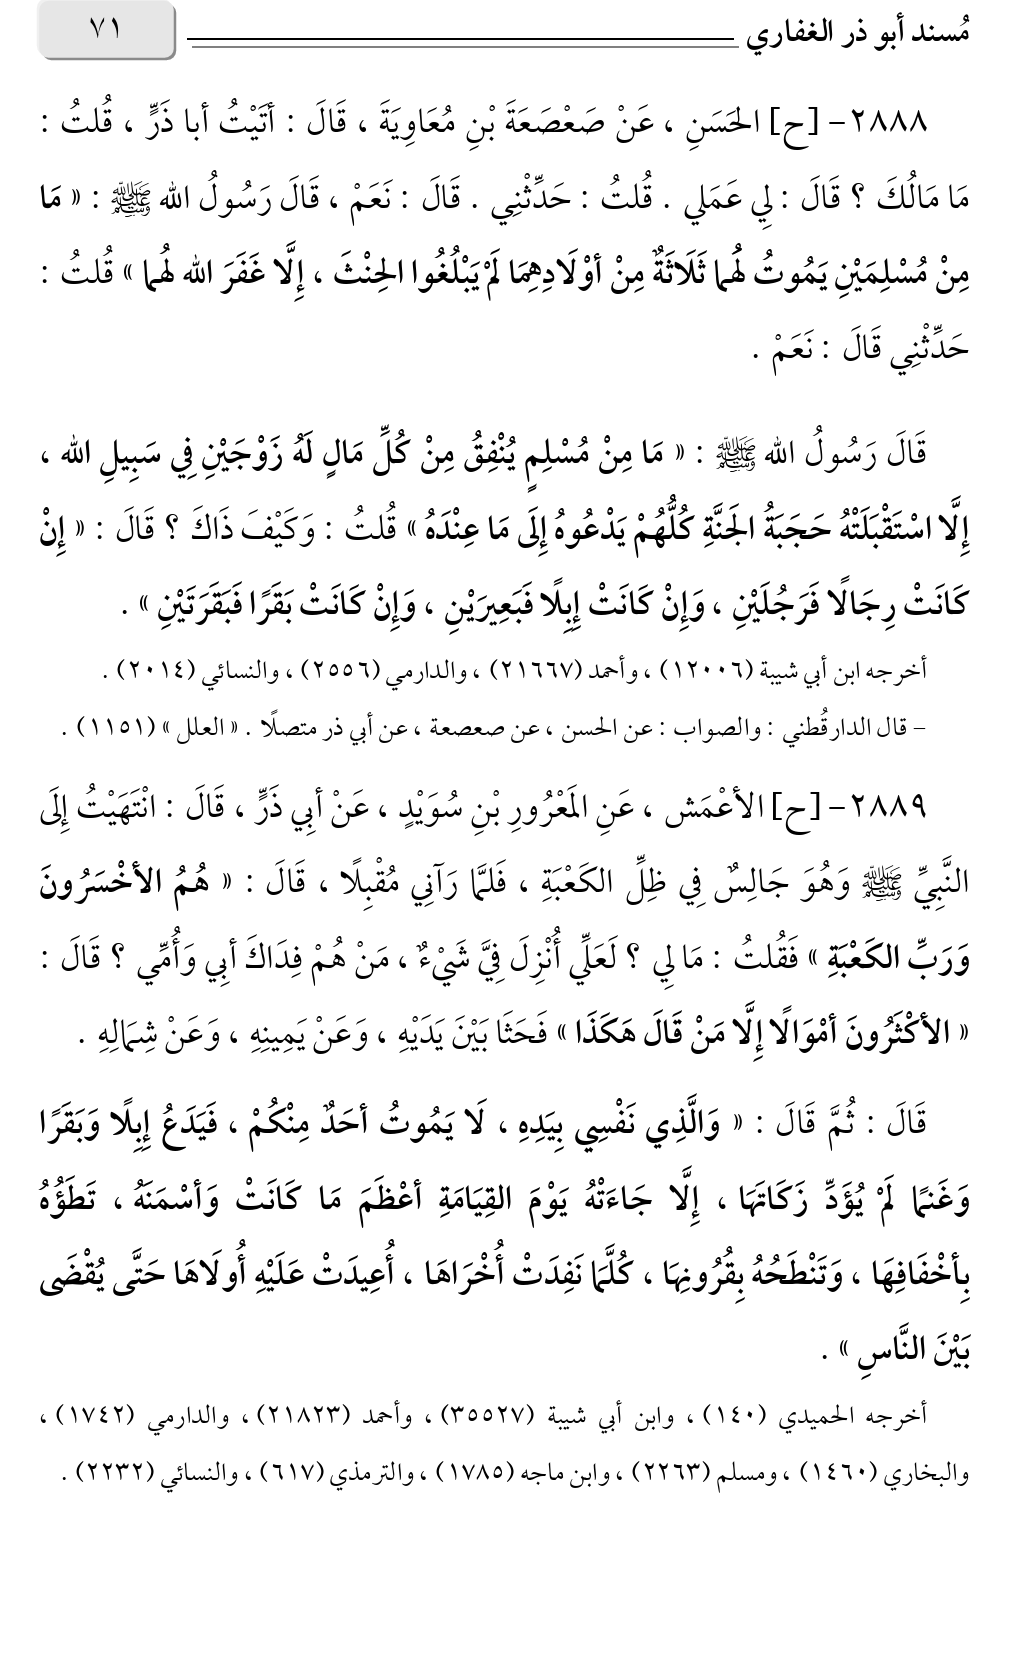 مُسند أبو ذر الغفاري ٧١
٢٨٨٨ - [ح] الحَسَنِ ، عَنْ صَعْصَعَةَ بْنِ مُعَاوِيَةَ ، قَالَ : أتَيْتُ أبا ذَرٍّ ، قُلتُ :
مَا مَالُكَ ؟ قَالَ : لِي عَمَلي . قُلتُ : حَدِّثْنِي . قَالَ : نَعَمْ ، قَالَ رَسُولُ الله ﷺ : « مَا
مِنْ مُسْلِمَيْنِ يَمُوتُ لهُما ثَلَاثَةٌ مِنْ أوْلَادِهِمَا لَمْ يَبْلُغُوا الحِنْثَ ، إِلَّا غَفَرَ الله لهُما » قُلتُ :
حَدِّثْنِي قَالَ : نَعَمْ .
قَالَ رَسُولُ الله ﷺ : « مَا مِنْ مُسْلِمٍ يُنْفِقُ مِنْ كُلِّ مَالٍ لَهُ زَوْجَيْنِ فِي سَبِيلِ الله ،
إِلَّا اسْتَقْبَلَتْهُ حَجَبَةُ الجَنَّةِ كُلُّهُمْ يَدْعُوهُ إِلَى مَا عِنْدَهُ » قُلتُ : وَكَيْفَ ذَاكَ ؟ قَالَ : « إِنْ
كَانَتْ رِجَالًا فَرَجُلَيْنِ ، وَإِنْ كَانَتْ إِبِلًا فَبَعِيرَيْنِ ، وَإِنْ كَانَتْ بَقَرًا فَبَقَرَتَيْنِ » .
أخرجه ابن أبي شيبة (١٢٠٠٦) ، وأحمد (٢١٦٦٧) ، والدارمي (٢٥٥٦) ، والنسائي (٢٠١٤) .
- قال الدارقُطني : والصواب : عن الحسن ، عن صعصعة ، عن أبي ذر متصلًا . « العلل » (١١٥١) .
٢٨٨٩ - [ح] الأعْمَش ، عَنِ المَعْرُورِ بْنِ سُوَيْدٍ ، عَنْ أبِي ذَرٍّ ، قَالَ : انْتَهَيْتُ إِلَى
النَّبِيِّ ﷺ وَهُوَ جَالِسٌ فِي ظِلِّ الكَعْبَةِ ، فَلمَّا رَآنِي مُقْبِلًا ، قَالَ : « هُمُ الأخْسَرُونَ
وَرَبِّ الكَعْبَةِ » فَقُلتُ : مَا لِي ؟ لَعَلِّي أُنْزِلَ فِيَّ شَيْءٌ ، مَنْ هُمْ فِدَاكَ أبِي وَأُمِّي ؟ قَالَ :
« الأكْثَرُونَ أمْوَالًا إِلَّا مَنْ قَالَ هَكَذَا » فَحَثَا بَيْنَ يَدَيْهِ ، وَعَنْ يَمِينِهِ ، وَعَنْ شِمَالِهِ .
قَالَ : ثُمَّ قَالَ : « وَالَّذِي نَفْسِي بِيَدِهِ ، لَا يَمُوتُ أحَدٌ مِنْكُمْ ، فَيَدَعُ إِبِلًا وَبَقَرًا
وَغَنمًا لَمْ يُؤَدِّ زَكَاتَهَا ، إِلَّا جَاءَتْهُ يَوْمَ القِيَامَةِ أعْظَمَ مَا كَانَتْ وَأسْمَنَهُ ، تَطَؤُهُ
بِأخْفَافِهَا ، وَتَنْطَحُهُ بِقُرُونِهَا ، كُلَّمَا نَفِدَتْ أُخْرَاهَا ، أُعِيدَتْ عَلَيْهِ أُولَاهَا حَتَّى يُقْضَى
بَيْنَ النَّاسِ » .
أخرجه الحميدي (١٤٠) ، وابن أبي شيبة (٣٥٥٢٧) ، وأحمد (٢١٨٢٣) ، والدارمي (١٧٤٢) ،
والبخاري (١٤٦٠) ، ومسلم (٢٢٦٣) ، وابن ماجه (١٧٨٥) ، والترمذي (٦١٧) ، والنسائي (٢٢٣٢) .